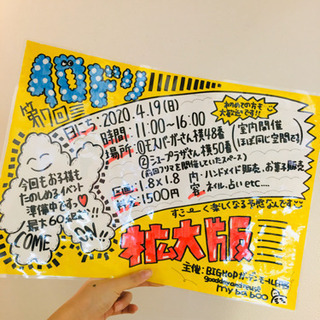 日にち:2020.4.19(日)
時間:11:00〜16:00
場所:①モスバーガーさん横48番
②ニュープラザさん横50番
(前回フリマを開催していたスペース)
1.8×1.8
1500円
内容:ハンドメイド販売、お菓子販売
ネイル、占いetc...
初めての方も
大歓迎です!!
室内開催
(ほぼ同じ空間です)
今回もお子様も
たのしめるイベント
準備中です
最大60
COME ON
すごーく楽しくなる予感なんです
拡大版
主催:BIGHOP
my baboo